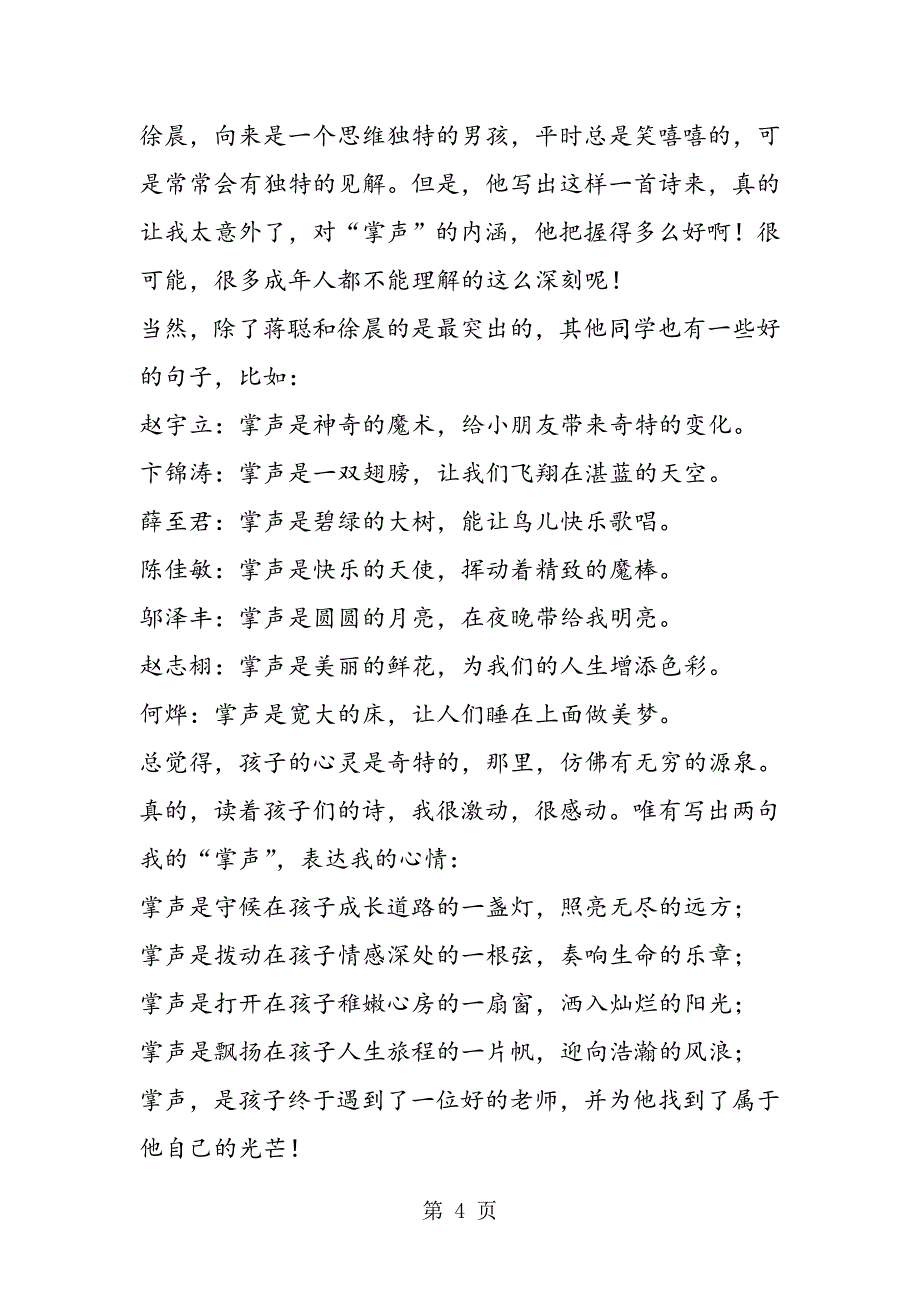 徐晨，向来是一个思维独特的男孩，平时总是笑嘻嘻的，可
是常常会有独特的见解。但是，他写出这样一首诗来，真的
让我太意外了，对“掌声”的内涵，他把握得多么好啊！很
可能，很多成年人都不能理解的这么深刻呢！
当然，除了蒋聪和徐晨的是最突出的，其他同学也有一些好
的句子，比如：
赵宇立：掌声是神奇的魔术，给小朋友带来奇特的变化。
卞锦涛：掌声是一双翅膀，让我们飞翔在湛蓝的天空。
薛至君：掌声是碧绿的大树，能让鸟儿快乐歌唱。
陈佳敏：掌声是快乐的天使，挥动着精致的魔棒。
邬泽丰：掌声是圆圆的月亮，在夜晚带给我明亮。
赵志栩：掌声是美丽的鲜花，为我们的人生增添色彩。
何烨：掌声是宽大的床，让人们睡在上面做美梦。
总觉得，孩子的心灵是奇特的，那里，仿佛有无穷的源泉。
真的，读着孩子们的诗，我很激动，很感动。唯有写出两句
我的“掌声”，表达我的心情：
掌声是守候在孩子成长道路的一盏灯，照亮无尽的远方；
掌声是拨动在孩子情感深处的一根弦，奏响生命的乐章；
掌声是打开在孩子稚嫩心房的一扇窗，洒入灿烂的阳光；
掌声是飘扬在孩子人生旅程的一片帆，迎向浩瀚的风浪；
掌声，是孩子终于遇到了一位好的老师，并为他找到了属于
他自己的光芒！
第 4 页